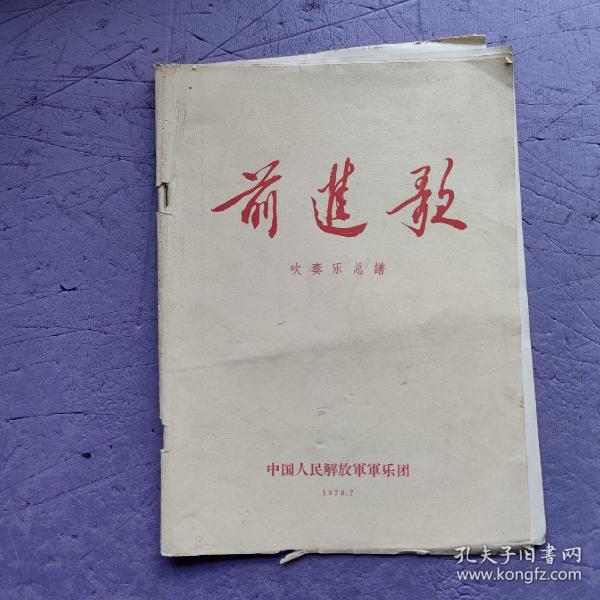 前進歌
吹奏乐总譜
中国人民解放軍軍乐团
1970.7
孔夫子旧書网
www.kongfz.com